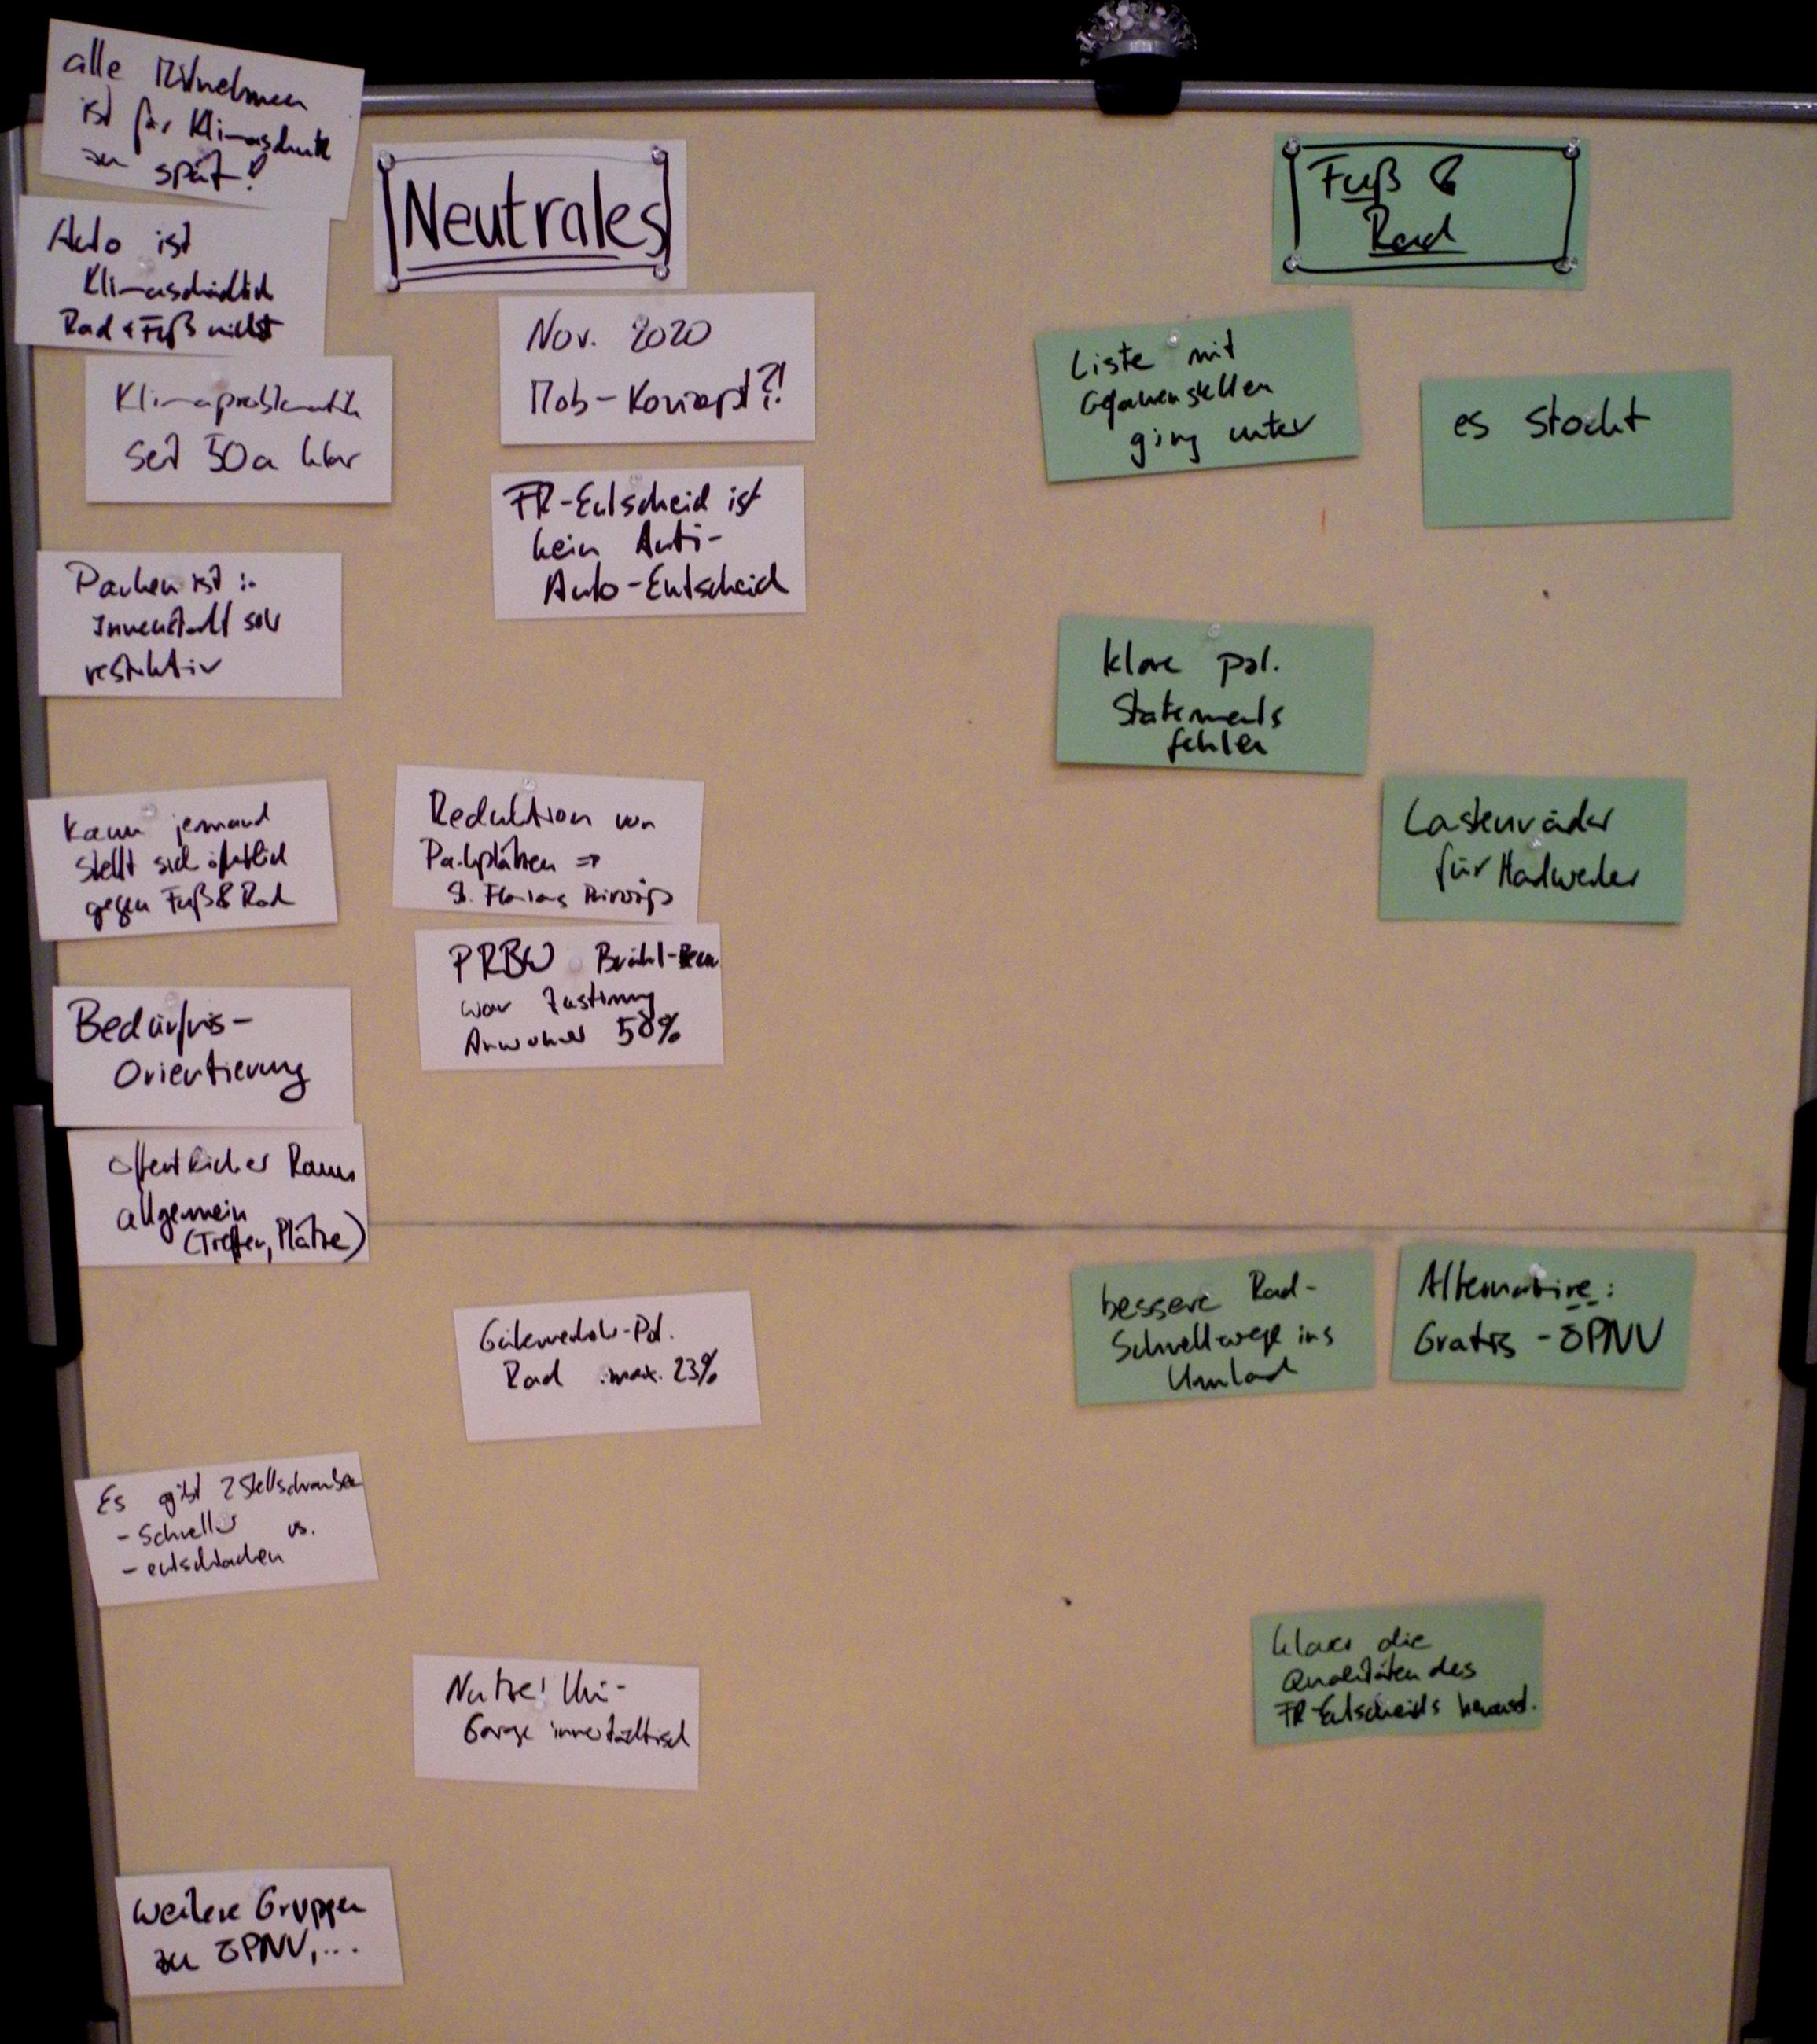 alle Mitnehmen
ist für Klimaschutz
zu spät!
Auto ist
Klimaschädlich
Rad + Fuß nicht
Klimaproblematik
seit 50a klar
Parken ist in
Innenstadt sehr
restriktiv
Kaum jemand
stellt sich öffentlich
gegen Fuß & Rad
Bedürfnis-
Orientierung
öffentlicher Raum
allgemein
(Treffen, Plätze)
Es gibt 2 Stellschrauben
- Schneller vs.
- entschlacken
weitere Gruppen
zu ÖPNV,...
Neutrales
Nov. 2020
Mob-Konzept?!
FR-Entscheid ist
kein Anti-
Auto-Entscheid
Reduktion von
Parkplätzen ⇒
St. Florians Prinzip
PRBW Brühl-
war Zustimmung
Anwohner 50%
Güterverkehr-Pot.
Rad max. 23%
Nutze! Uni-
Garage innerstädtisch
Fuß &
Rad
Liste mit
Gefahrenstellen
ging unter
es stockt
klare pol.
Statements
fehlen
Lastenräder
für Handwerker
bessere Rad-
Schnellwege ins
Umland
Alternative:
Gratis - ÖPNV
klarer die
Qualitäten des
FR-Entscheids herausst.